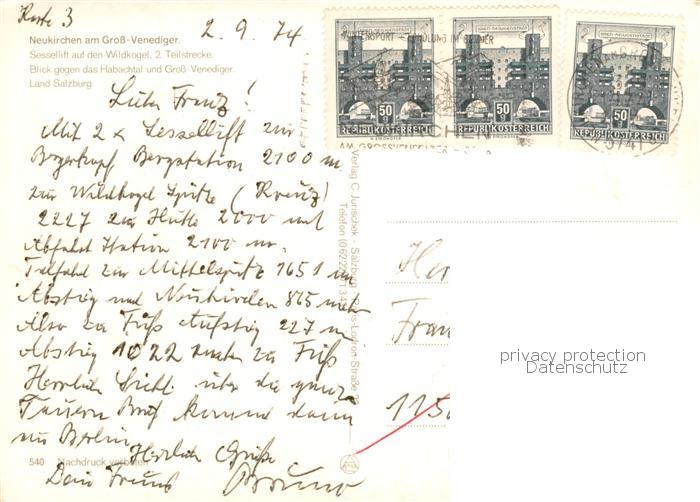 Karte 3
2.9.74
Neukirchen am Groß-Venediger.
Sessellift auf den Wildkogel, 2. Teilstrecke.
Blick gegen das Habachtal und Groß-Venediger.
Land Salzburg
Lieber Franz!
Mit 2 x Sessellift zur
Bergstation 2100 m,
zur Wildkogel Spitze (Kreuz)
2227 zur Hütte 2000 und
Abfahrt Station 2100 m.
Talfahrt zur Mittelspitz 1651 m
Abstieg nach Neukirchen 865 meter
Also zu Fuß Aufstieg 227 m
Abstieg 1022 meter zu Fuß
Herrliche Sicht über die ganze
Tauern Brief kommt dann
aus Berlin
Herzliche Grüße
Dein Freund Bruno
540 Nachdruck verboten
Verlag C. Jurischek - Salzburg
Telefon (06222)
50
REPUBLIK ÖSTERREICH
50
REPUBLIK ÖSTERREICH
50
REPUBLIK ÖSTERREICH
5741
Her
Fran
115
privacy protection
Datenschutz